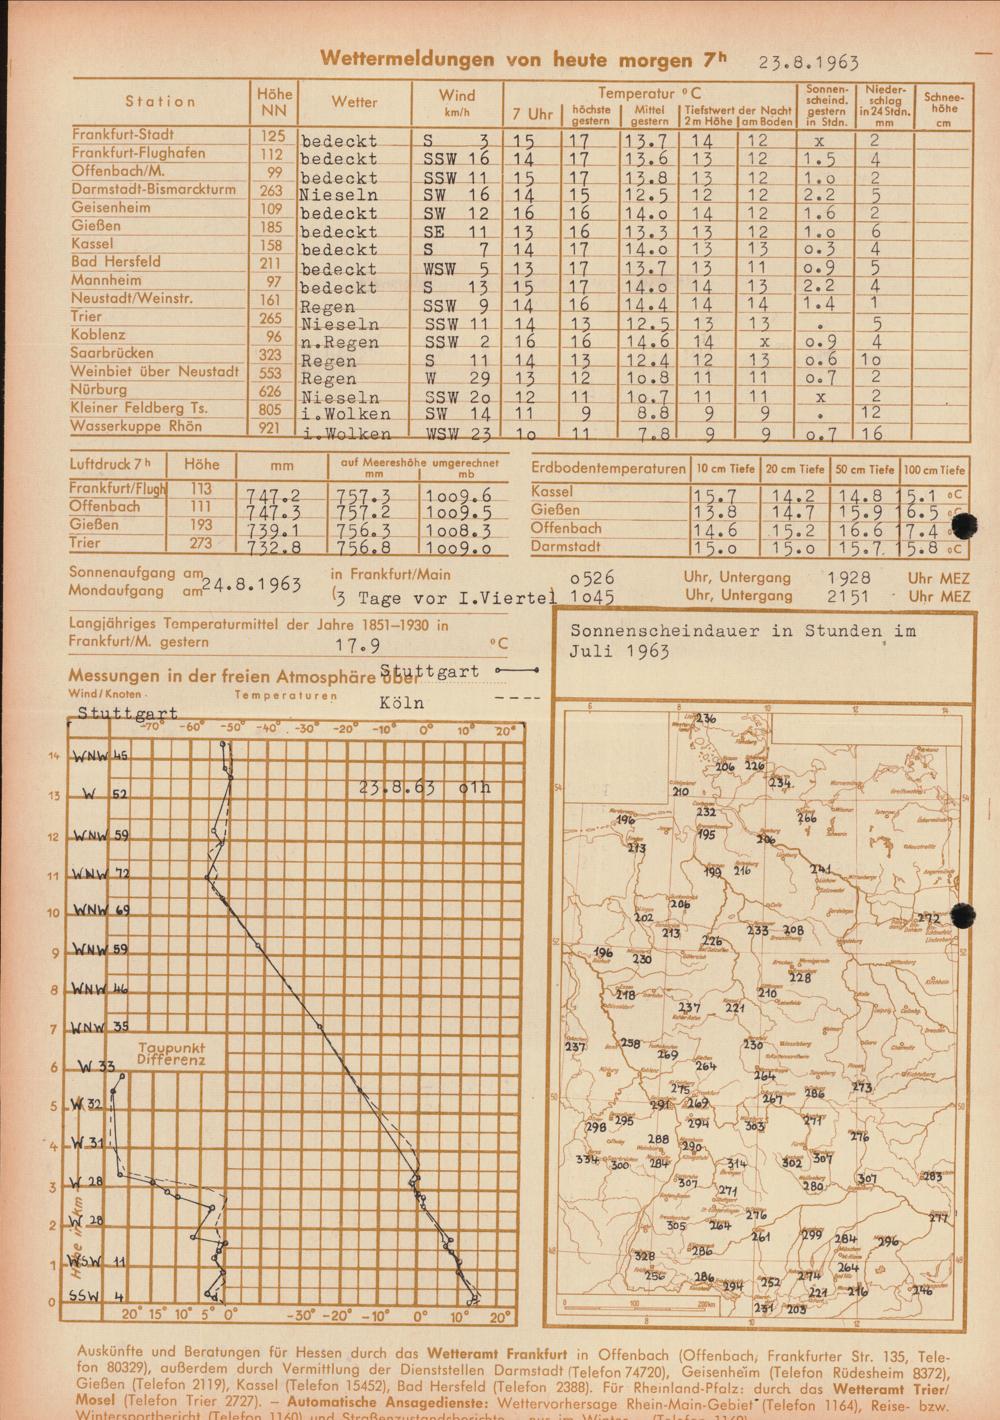 Wettermeldungen von heute morgen 7h 23.8.1963
Station Höhe NN Wetter Wind km/h Temperatur °C Sonnen-scheind. gestern in Stdn. Nieder-schlag in 24 Stdn. mm Schnee-höhe cm
7 Uhr höchste gestern Mittel gestern Tiefstwert der Nacht 2m Höhe am Boden
Frankfurt-Stadt 125 bedeckt S 3 15 17 13.7 14 12 x 2
Frankfurt-Flughafen 112 bedeckt SSW 16 14 17 13.6 13 12 1.5 4
Offenbach/M. 99 bedeckt SSW 11 15 17 13.8 13 12 1.o 2
Darmstadt-Bismarckturm 263 Nieseln SW 16 14 15 12.5 12 12 2.2 5
Geisenheim 109 bedeckt SW 12 16 16 14.o 14 12 1.6 2
Gießen 185 bedeckt SE 11 13 16 13.3 13 12 1.o 6
Kassel 158 bedeckt S 7 14 17 14.o 13 13 o.3 4
Bad Hersfeld 211 bedeckt WSW 5 13 17 13.7 13 11 o.9 5
Mannheim 97 bedeckt S 13 15 17 14.o 14 13 2.2 4
Neustadt/Weinstr. 161 Regen SSW 9 14 16 14.4 14 14 1.4 1
Trier 265 Nieseln SSW 11 14 13 12.5 13 13 . 5
Koblenz 96 n.Regen SSW 2 16 16 14.6 14 x o.9 4
Saarbrücken 323 Regen S 11 14 13 12.4 12 13 o.6 1o
Weinbiet über Neustadt 553 Regen W 29 13 12 1o.8 11 11 o.7 2
Nürburg 626 Nieseln SSW 2o 12 11 1o.7 11 11 x 2
Kleiner Feldberg Ts. 805 i.Wolken SW 14 11 9 8.8 9 9 . 12
Wasserkuppe Rhön 921 i.Wolken WSW 23 1o 11 7.8 9 9 o.7 16
Luftdruck 7h Höhe mm auf Meereshöhe umgerechnet mm mb
Frankfurt/Flugh 113 747.2 757.3 1oo9.6
Offenbach 111 747.3 757.2 1oo9.5
Gießen 193 739.1 756.3 1oo8.3
Trier 273 732.8 756.8 1oo9.o
Erdbodentemperaturen 10 cm Tiefe 20 cm Tiefe 50 cm Tiefe 100 cm Tiefe
Kassel 15.7 14.2 14.8 15.1 °C
Gießen 13.8 14.7 15.9 16.5 °C
Offenbach 14.6 15.2 16.6 17.4 °C
Darmstadt 15.o 15.o 15.7 15.8 °C
Sonnenaufgang am 24.8.1963 in Frankfurt/Main o526 Uhr, Untergang 1928 Uhr MEZ
Mondaufgang am (3 Tage vor I.Viertel 1o45 Uhr, Untergang 2151 Uhr MEZ
Langjähriges Temperaturmittel der Jahre 1851–1930 in
Frankfurt/M. gestern 17.9 °C
Messungen in der freien Atmosphäre über Stuttgart
Wind/Knoten Temperaturen Köln
Stuttgart
-70° -60° -50° -40° -30° -20° -10° 0° 10° 20°
23.8.63 o1h
14 WNW 45
13 W 52
12 WNW 59
11 WNW 72
10 WNW 69
9 WNW 59
8 WNW 46
7 WNW 35
Taupunkt
Differenz
6 W 33
5 W 32
4 W 31
3 W 28
2 W 28
1 WSW 11
0 SSW 4
Höhe in km
20° 15° 10° 5° 0° -30° -20° -10° 0° 10° 20°
Sonnenscheindauer in Stunden im
Juli 1963
6 8 10 12 14
236
206 226
234
210
54 54
232
196 266
195 206
213
199 216 241
206
202 272
213 233 208
226
52 52
196 230
228
218 210
237 221
237 258 230
269
264 264
275 286 273
291 269 267
50 50
298 295 294 303 271
276
288 290
334 300 284 314 302 307
307 280 307 283
271
276 277
305 264
261 299 284 296
48 48
328 286
264
256 286 294 252 274
221 216 246
231 203
0 100 200km
8 12
Auskünfte und Beratungen für Hessen durch das Wetteramt Frankfurt in Offenbach (Offenbach, Frankfurter Str. 135, Tele-
fon 80329), außerdem durch Vermittlung der Dienststellen Darmstadt (Telefon 74720), Geisenheim (Telefon Rüdesheim 8372),
Gießen (Telefon 2119), Kassel (Telefon 15452), Bad Hersfeld (Telefon 2388). Für Rheinland-Pfalz: durch das Wetteramt Trier/
Mosel (Telefon Trier 2727). – Automatische Ansagedienste: Wettervorhersage Rhein-Main-Gebiet (Telefon 1164), Reise- bzw.
Wintersportbericht (Telefon 1160) und Straßenzustandsberichte – nur im Winter – (Telefon 1169)